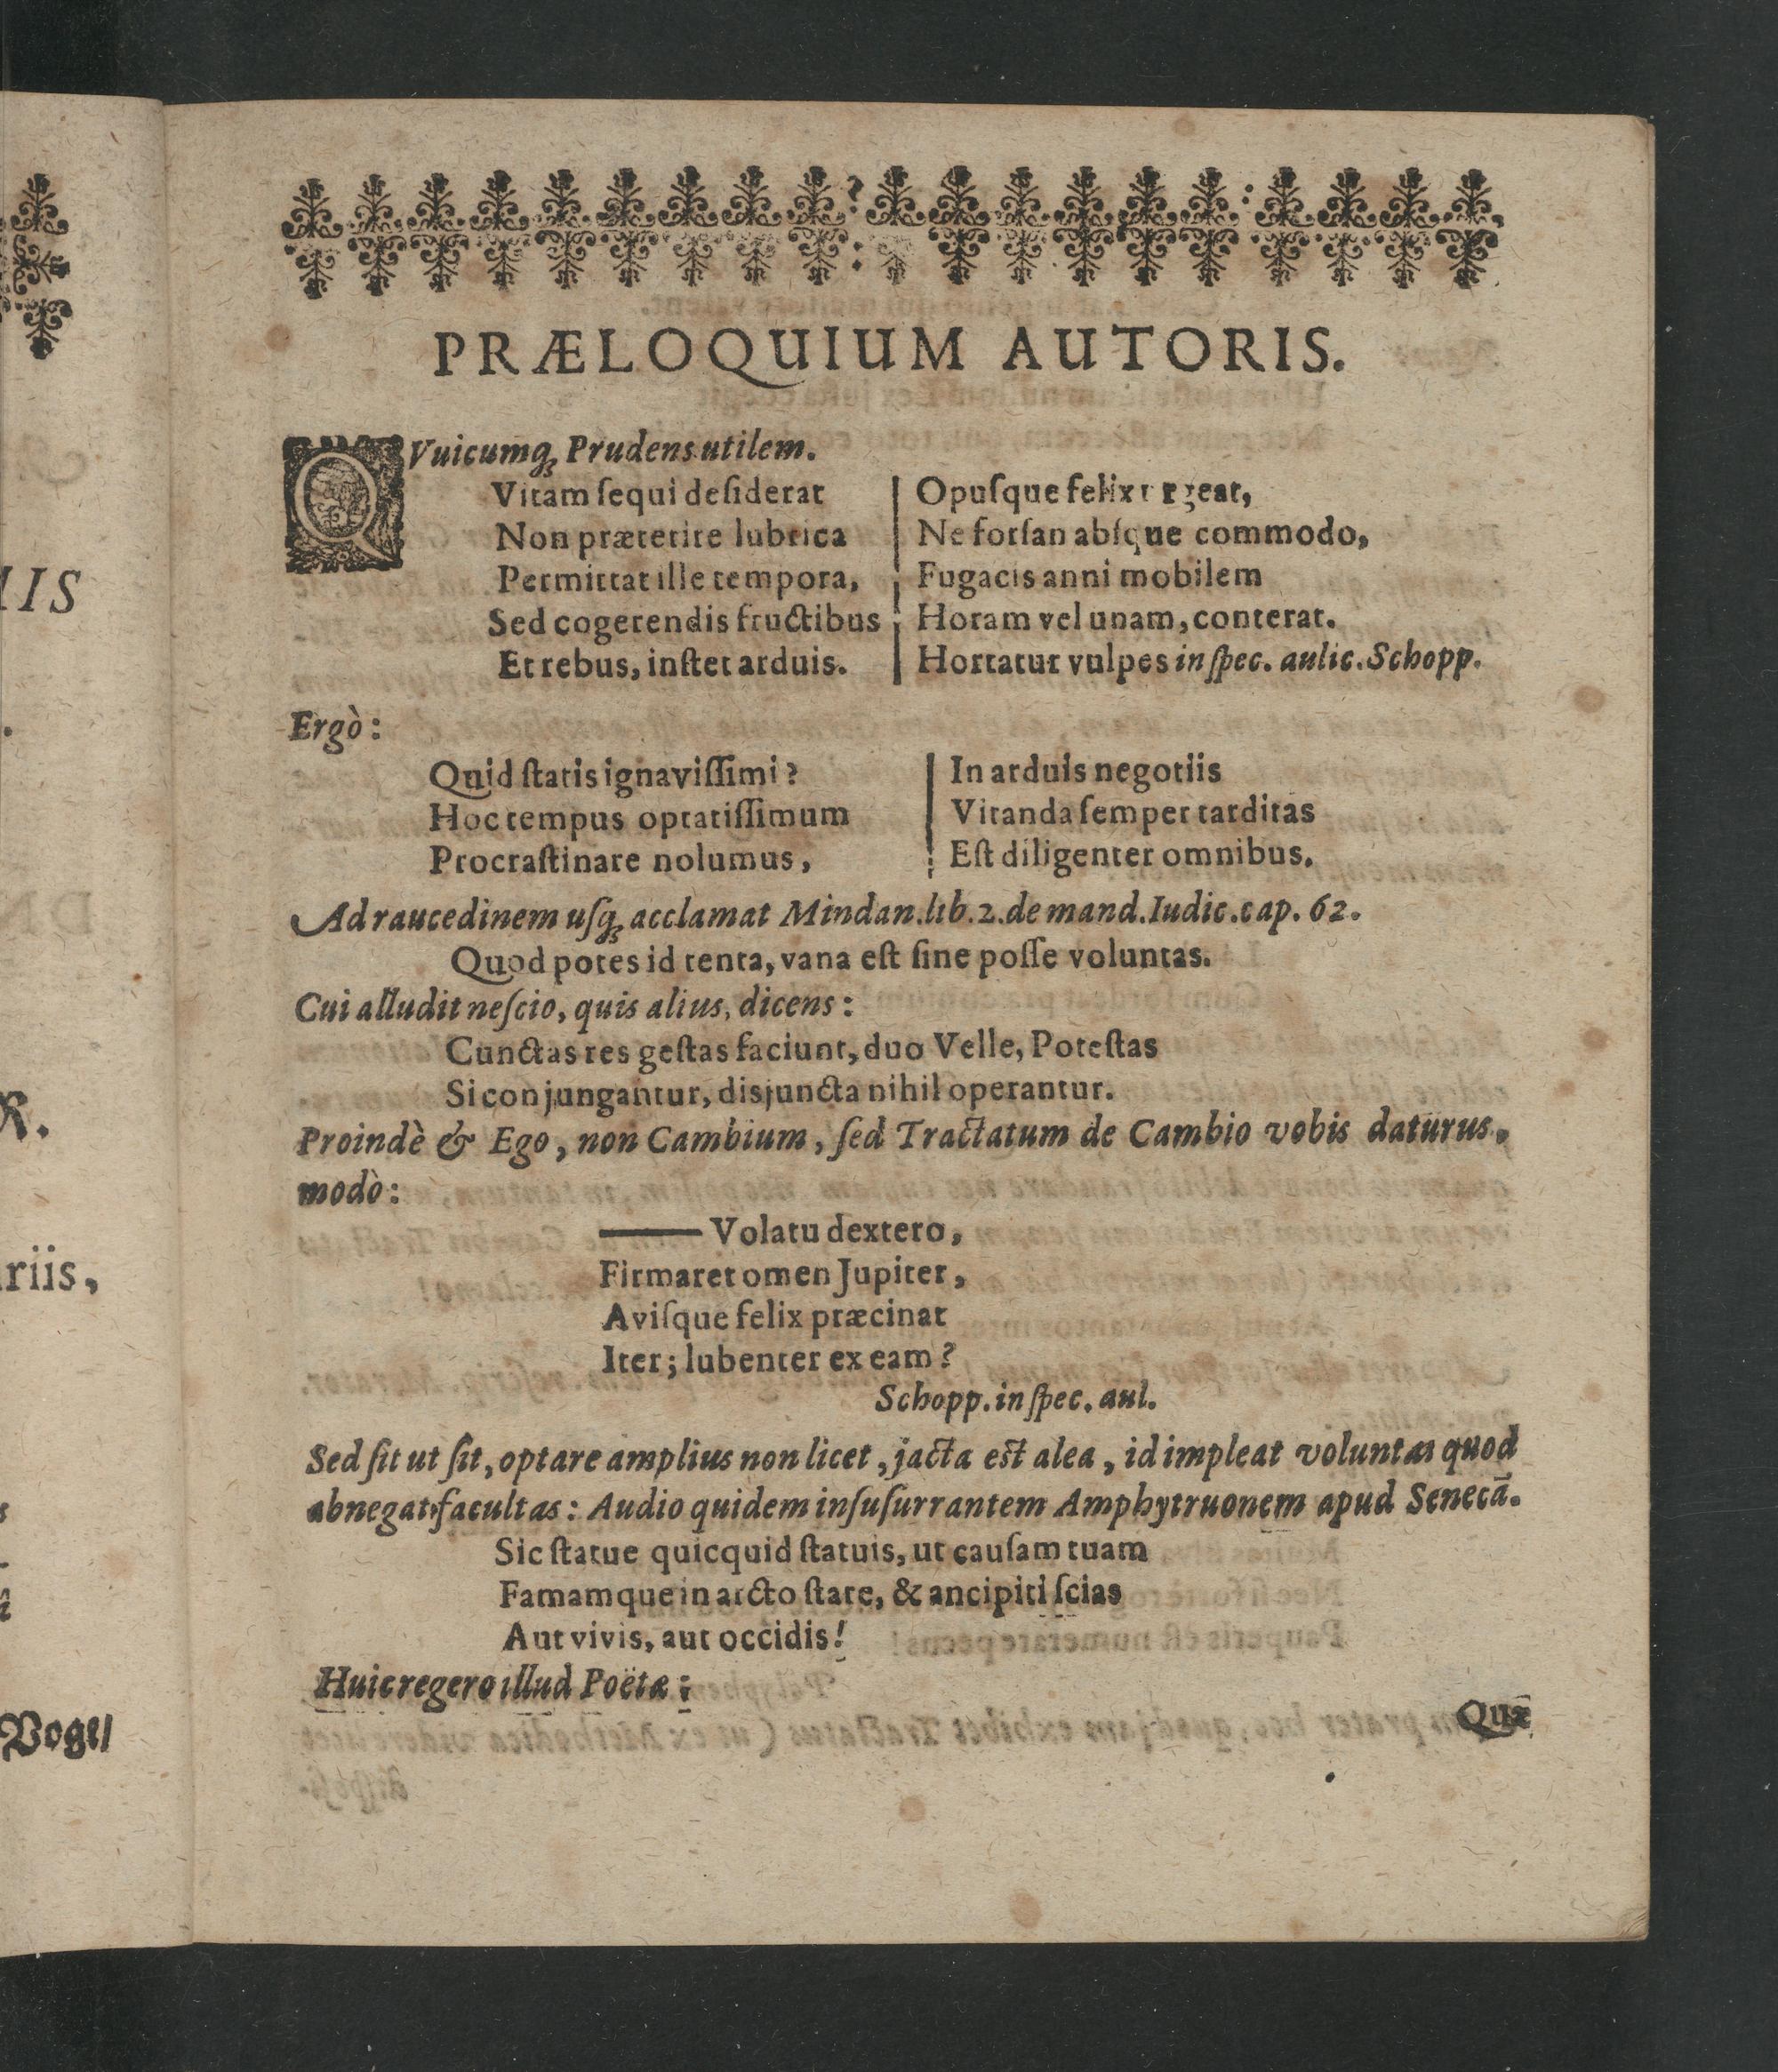 PRÆLOQUIUM AUTORIS.
QVuicumq; Prudens utilem.
Vitam ſequi deſiderat
Non præterire lubrica
Permittat ille tempora,
Sed cogerendis fructibus
Et rebus, inſtet arduis.
Opuſque felix
Ne forſan abſque commodo,
Fugacis anni mobilem
Horam vel unam, conterat.
Hortatur vulpes in ſpec. aulic. Schopp.
Ergò:
Quid ſtatis ignaviſſimi?
Hoc tempus optatiſſimum
Procraſtinare nolumus,
In arduis negotiis
Vitanda ſemper tarditas
Eſt diligenter omnibus.
Ad raucedinem uſq; acclamat Mindan. lib. 2. de mand. Iudic. cap. 62.
Quod potes id tenta, vana eſt ſine poſſe voluntas.
Cui alludit neſcio, quis alius, dicens:
Cunctas res geſtas faciunt, duo Velle, Poteſtas
Si conjungantur, disjuncta nihil operantur.
Proindè & Ego, non Cambium, ſed Tractatum de Cambio vobis daturus,
modò:
——— Volatu dextero,
Firmaret omen Jupiter,
Aviſque felix præcinat
Iter; lubenter ex eam?
Schopp. in ſpec. aul.
Sed ſit ut ſit, optare amplius non licet, jacta eſt alea, id impleat voluntas quod
abnegat facultas: Audio quidem inſuſurrantem Amphytruonem apud Senecā.
Sic ſtatue quicquid ſtatuis, ut cauſam tuam
Famamque in arcto ſtare, & ancipiti ſcias
Aut vivis, aut occidis!
Huic regero illud Poëtæ:
Quæ
IIS
R.
riis,
Vogel